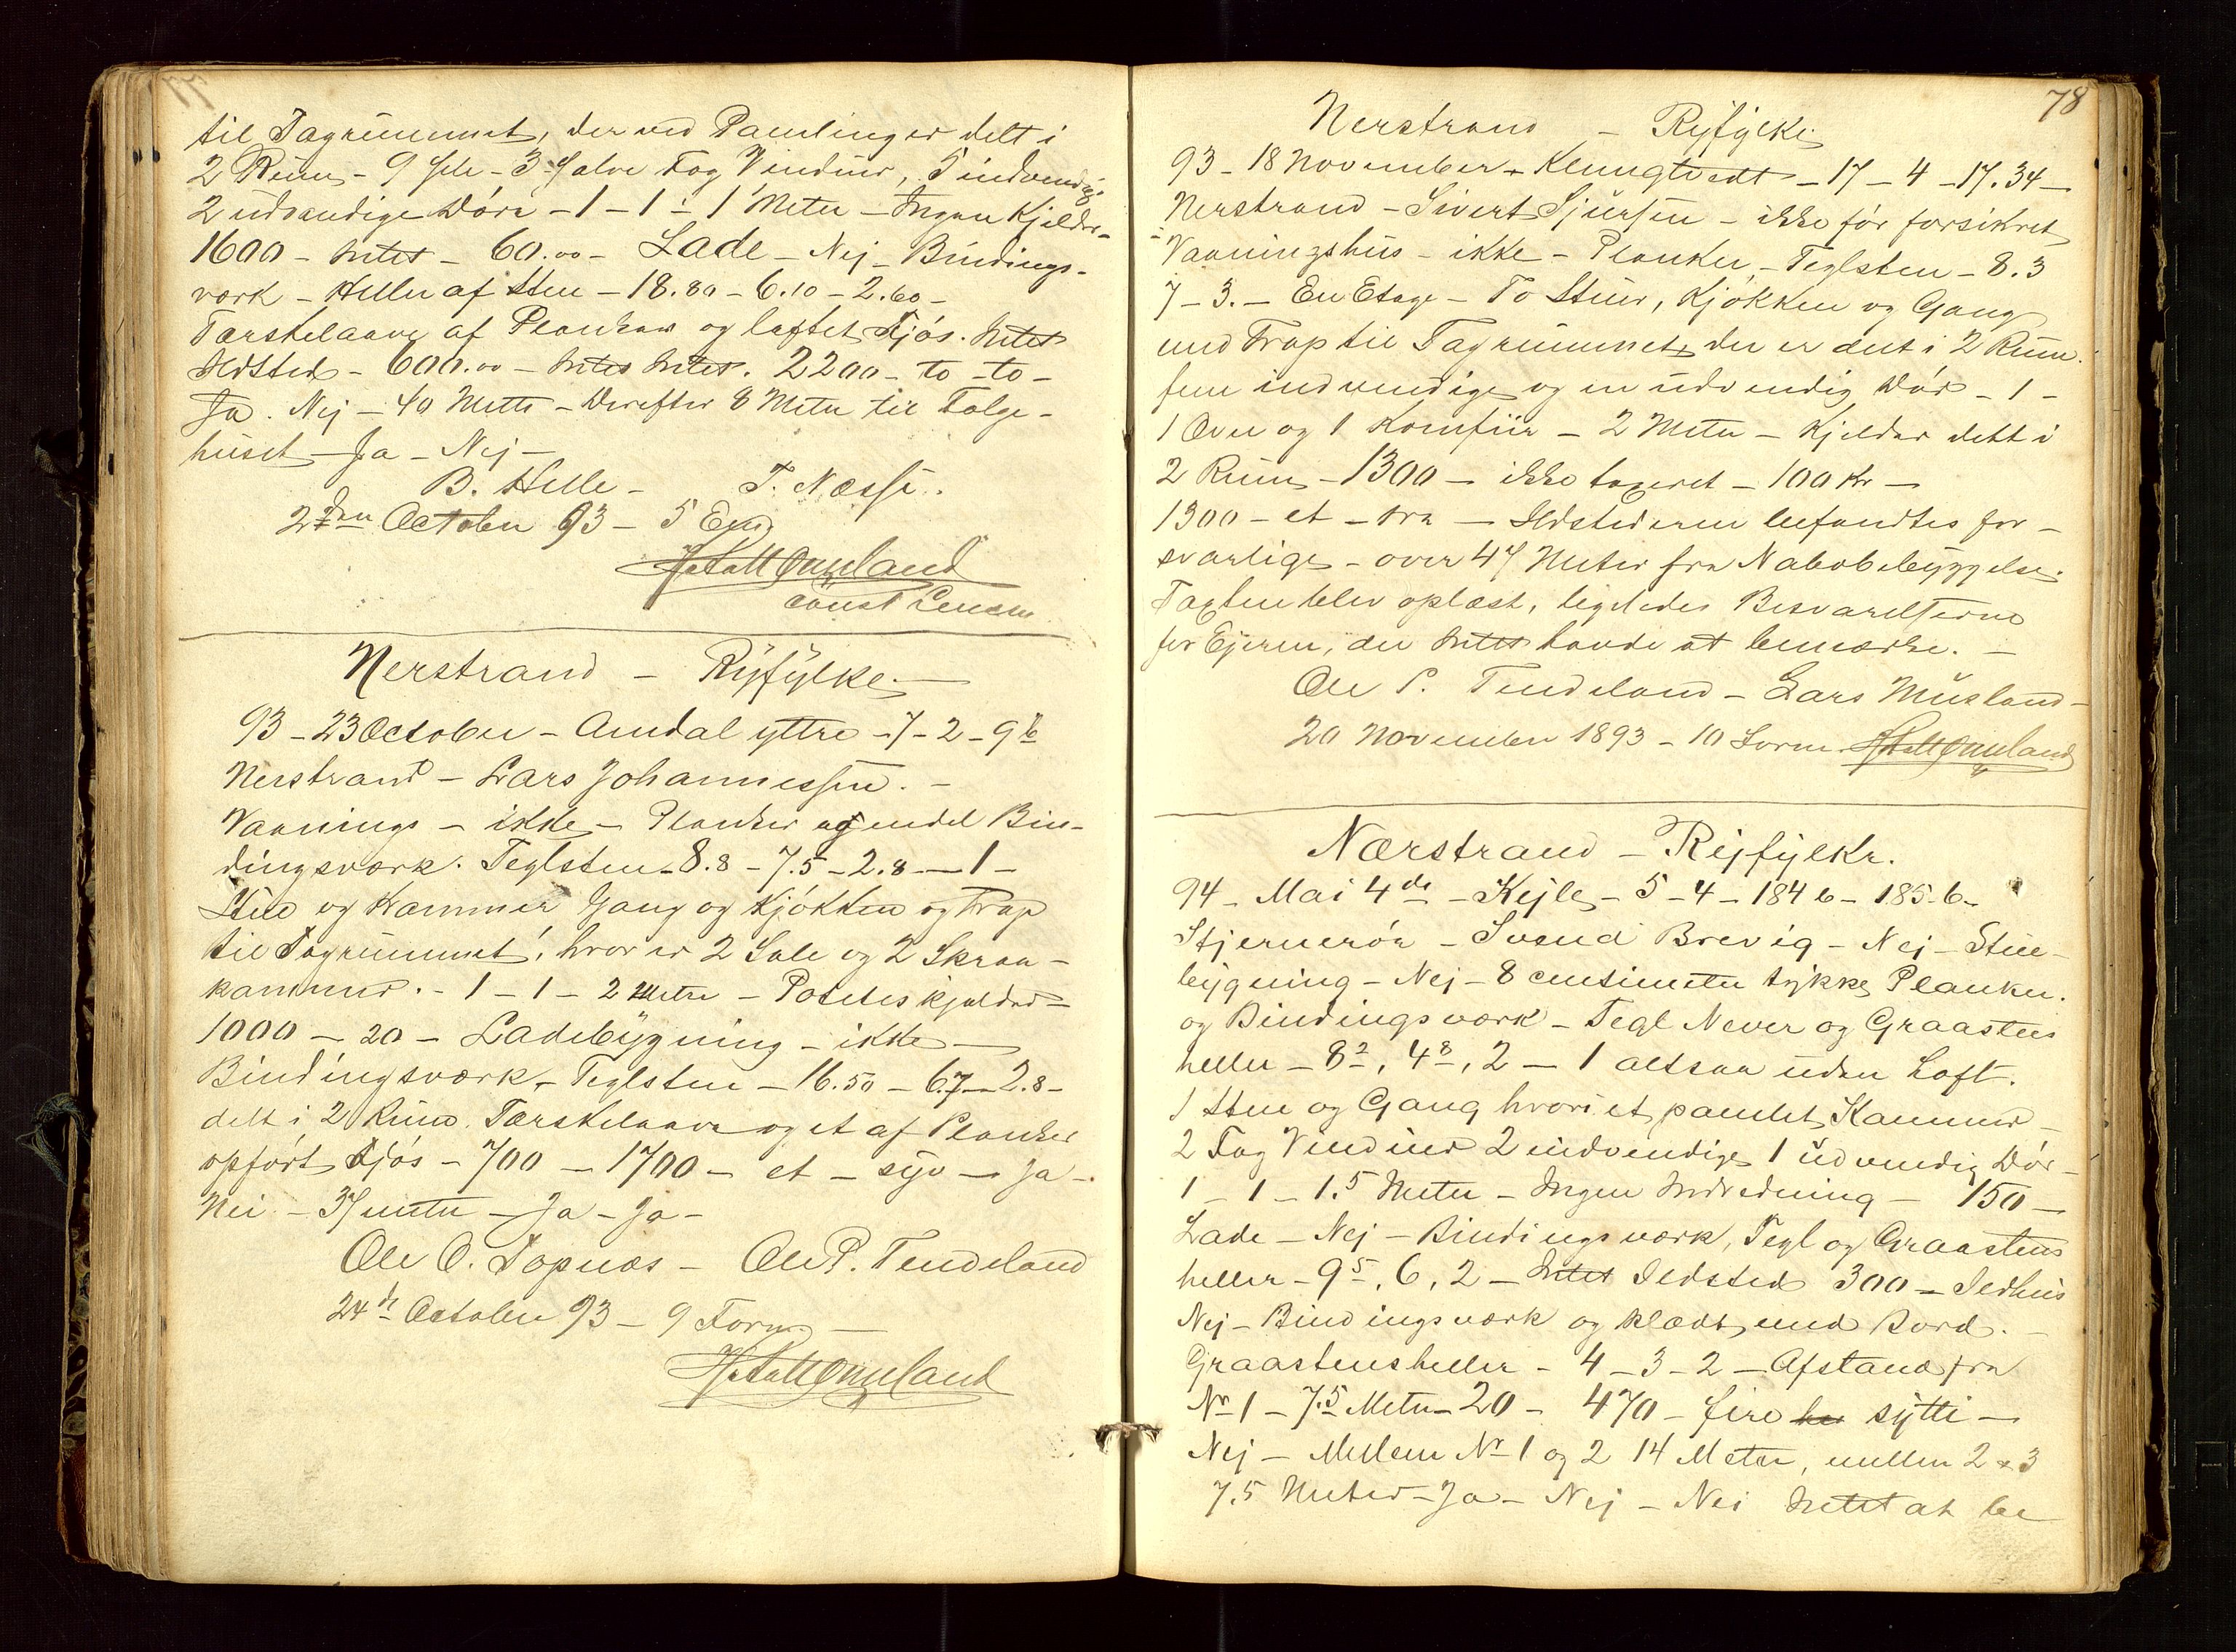 til Tagrummet, der ved Pamling er delt i
2 Rum - 9 hele - 3 halve Fag Vinduer, 5 indvendige
2 udvendige Døre - 1 - 1 - 1 Meter - Ingen Kjelder -
1600 - Intet - 60.00 - Lade - Nej - Bindings-
værk - Heller af Sten - 18.80 - 6.10 - 2.60 -
Tærskelaave af Planker og loftet Fjøs. Intet
Ildsted - 600.00 - Intet Intet. 2200 - to - to -
Ja. Nej - 40 Mettr - Derefter 8 Meter til Følge-
huset - Ja - Nej -
B. Helle - T. Næsse.
2den October 93 - 5 Em
Omland
const Lensm
Nerstrand - Ryfylke -
93 - 23 October - Amdal yttre - 7 - 2 - 9 b
Nerstrand - Lars Johannessen. -
Vaanings - ikke - Planker og endel Bin-
dingsværk. Teglsten - 8.8 - 7.5 - 2.8 - 1 -
Stue og Kammer Gang og Kjøkken og Trap
til Tagrummet, hvor er 2 Sale og 2 Skraa-
kammer. - 1 - 1 - 2 Metre - Potetes kjelder -
1000 - 20 - Ladebygning - ikke -
Bindingsværk - Teglsten - 16.50 - 6.7 - 2.8 -
delt i 2 Rum. Tærskelaave og et af Planker
opført Fjøs - 700 - 1700 - et - syv - Ja -
Nei - 37 meter - Ja - Ja -
Ole O. Topnæs - Ole P. Tendeland
24de October 93 - 9 Form -
Omland
78
Nerstrand - Ryfylke
93 - 18 November - Klungtvedt - 17 - 4 - 17.34 -
Nerstrand - Sivert Sjursen - ikke før forsikret
Vaaningshus - ikke - Planker - Teglsten - 8.3
7 - 3. - En Etage - To Stuer, Kjøkken og Gang
med Trap til Tagrummet, der er delt i 2 Rum.
fem indvendige og en udvendig Dør - 1 -
1 Ovn og 1 Komfur - 2 Meter - Kjelder delt i
2 Rum - 1300 - ikke taxeret - 100 Kr -
1300 - et - tre - Ildstederne befandtes for-
svarlige - over 47 Meter fra Nabobebyggelse.
Taxten blev oplæst, ligeledes Besvarelserne
for Ejeren, der Intet havde at bemærke. -
Ole P. Tendeland - Lars Musland -
20 November 1893 - 10 Form. Omland
Nærstrand - Ryfylke.
94 - Mai 4de - Kejle - 5 - 4 - 184 b - 185 - 6 -
Stjernerøe - Svend Brevig - Nej - Stue-
bygning - Nej - 8 centimeter tykke Planker.
og Bindingsværk - Tegl Never og Graastens
heller - 8 2, 4 8, 2 - 1 altsaa uden Loft.
1 Stue og Gang hvori et pamlet Kammer -
2 Fag Vinduer 2 indvendige 1 udvendig Dør -
1 - 1 - 1.5 Meter - Ingen Indredning - 150 -
Lade - Nej - Bindingsværk, Tegl og Graastens
heller - 9 5, 6, 2 - Intet Ildsted 300 - Ildhus
Nej - Bindingsværk og klædt med Bord. -
Graastensheller - 4 - 3 - 2 - Afstand fra
No 1 - 7.5 Meter - 20 - 470 - fire sytti -
Nej - Mellem No 1 og 2 14 Meter, mellem 2 & 3
7.5 Meter - Ja - Nej - Nei Intet at be